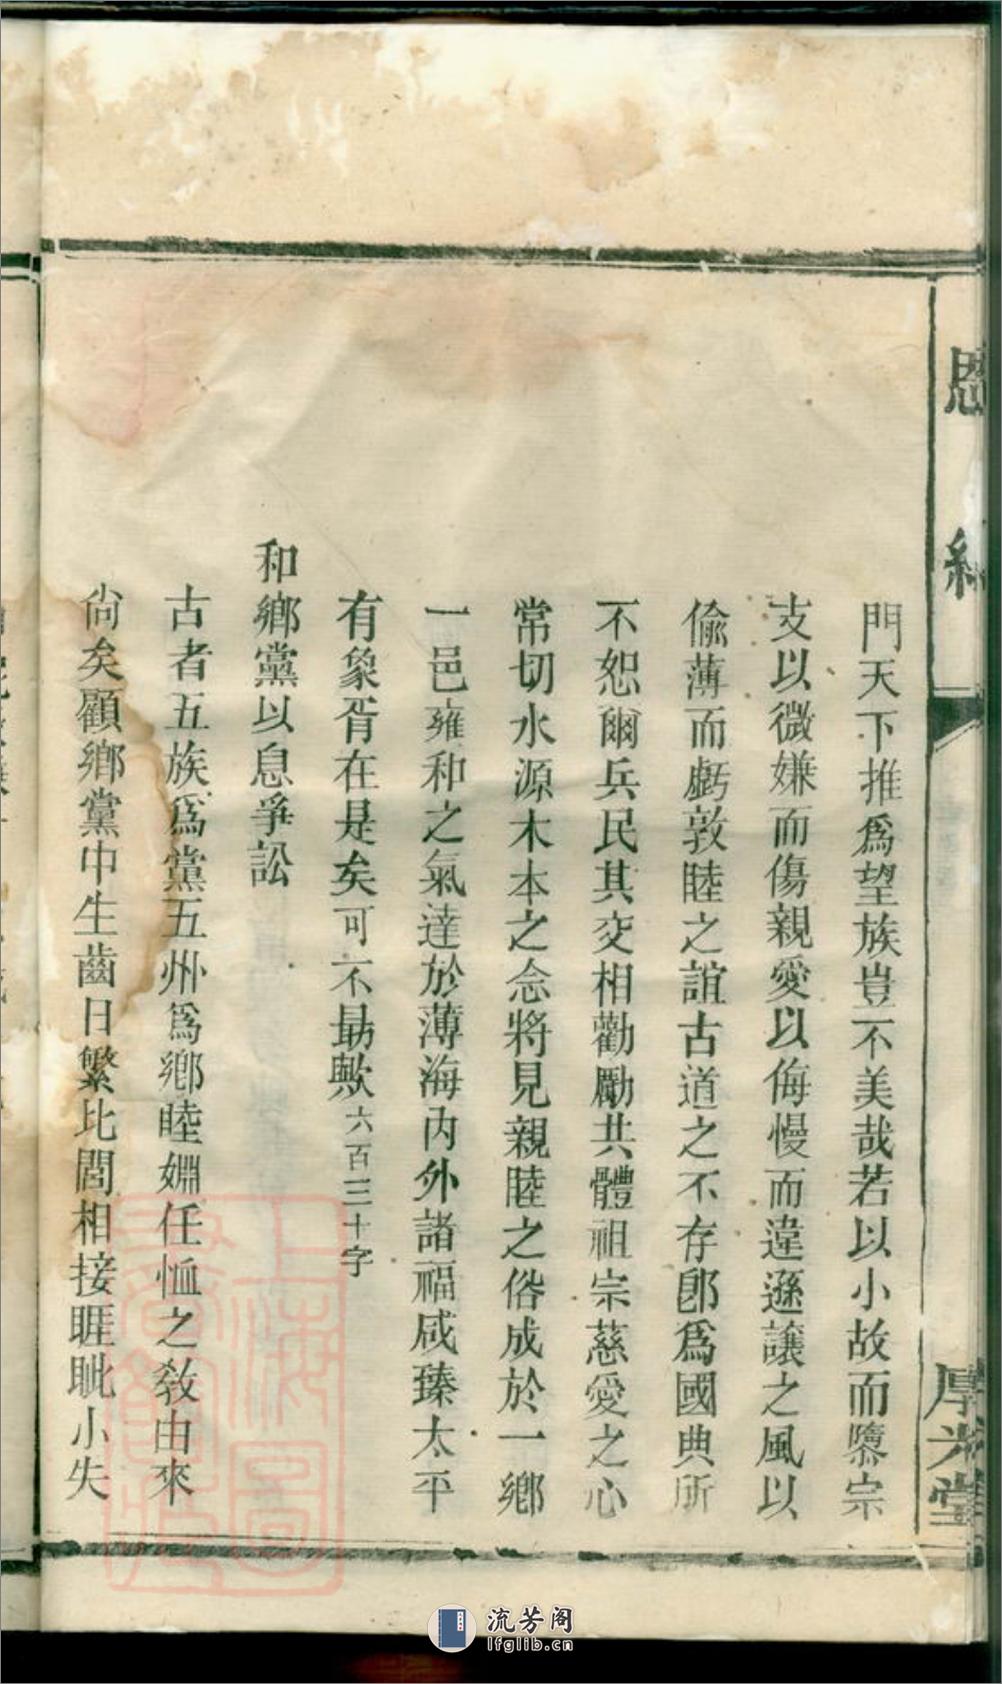 恩綸
厚光堂
門天下推爲望族豈不美哉若以小故而隳宗
支以微嫌而傷親愛以侮慢而違遜讓之風以
偷薄而虧敦睦之誼古道之不存卽爲國典所
不恕爾兵民其交相勸勵共體祖宗慈愛之心
常切水源木本之念將見親睦之俗成於一鄉
一邑雍和之氣達於薄海內外諸福咸臻太平
有象胥在是矣可不勗歟六百三十字
和鄉黨以息爭訟
古者五族爲黨五州爲鄉睦婣任恤之敎由來
尙矣顧鄉黨中生齒日繁比閭相接睚眦小失
上海圖書館藏
流芳阁
lfglib.cn